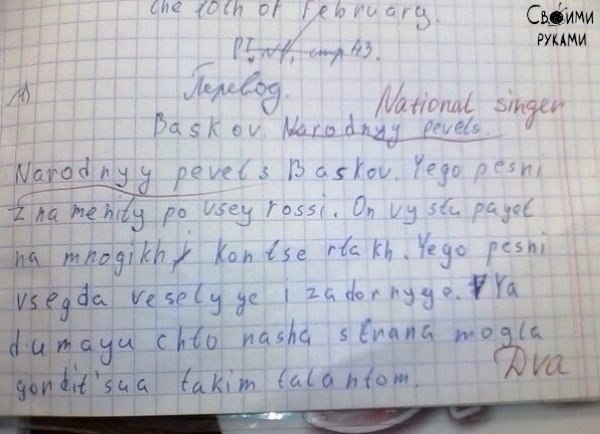 the 10th of February.
Своими
руками
PI, №1, стр 43.
Перевод.
National singer
Baskov. Narodnyy pevets.
Narodnyy pevets Baskov. Yego pesni
znamenity po vsey rossi. On vystupayet
na mnogikh kontsertakh. Yego pesni
vsegda veselyye i zadornyye. Ya
dumayu chto nasha strana mogla
gordit'sya takim talantom.
Dva